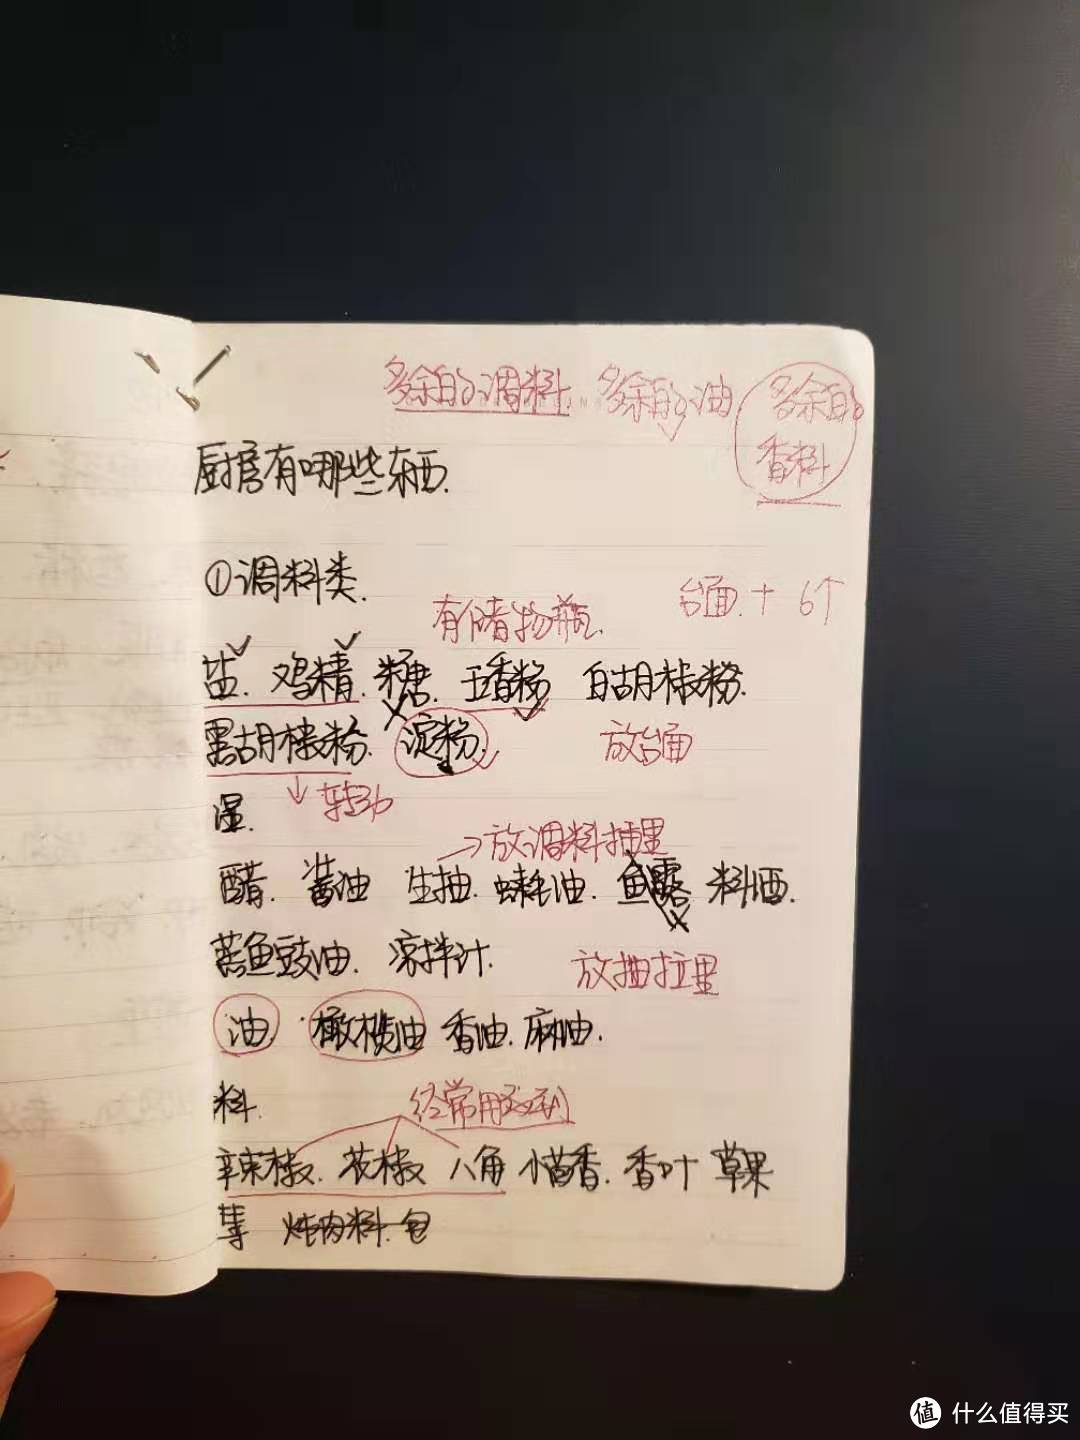 多余的调料 多余的油 多余的
香料
厨房有哪些东西.
①调料类.
有储物瓶. 台面.+6个
盐.鸡精.糖.五香粉 白胡椒粉.
黑胡椒粉.淀粉. 放台面
↓转动
湿.
→放调料抽里
醋.酱油 生抽.蚝油.鱼露 料酒.
蒸鱼豉油.凉拌汁.
放抽拉里
油.橄榄油 香油.麻油.
料. 经常用到
辣椒.花椒 八角 小茴香.香叶 草果
等 炖肉料包
值 什么值得买